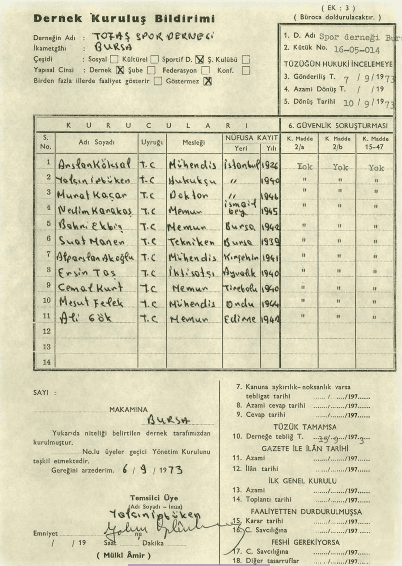 ( EK : 3 )
( Büroca doldurulacaktır. )
Dernek Kuruluş Bildirimi
Derneğin Adı : TOFAŞ SPOR DERNEGİ
İkametgâhı : BURSA
Çeşidi : Sosyal Kültürel Sportif D. X Ş. Kulübü
Yapısal Cinsi : Dernek X Şube Federasyon Konf.
Birden fazla illerde faaliyet gösterir Göstermez X
1. D. Adı Spor derneği Bur
2. Kütük No. 16-05-014
TÜZÜĞÜN HUKUKİ İNCELEMEYE
3. Gönderiliş T. 7 / 9 /1973
4. Azami Dönüş T. / /19
5. Dönüş Tarihi 10 / 9 /1973
KURUCULARI
6. GÜVENLİK SORUŞTURMASI
S. No. Adı Soyadı Uyruğu Mesleği NÜFUSA KAYIT Yeri Yılı K. Madde 2/a K. Madde 2/b K. Madde 15-47
1 Arslan Köksal T.C Mühendis İstanbul 1926 Yok Yok Yok
2 Yalçın İpbüken T.C Hukukçu " 1940 " " "
3 Murat Kaçar T.C Doktor " 1946 " " "
4 Nedim Karakaş T.C Memur 1945 " " "
5 Bahri Ekbiş T.C Memur Bursa " " "
6 Suat Manen T.C Tekniken Bursa 1939 " " "
7 T.C Mühendis Kırşehir 1941 " " "
8 Ersin Taş T.C İktisatçı Ayvalık 1940 " " "
9 Cemal Kurt T.C Memur Tirebolu 1940 " " "
10 Mesut Felek T.C Mühendis Ordu 1944 " " "
11 Ali Gök T.C Memur Edirne 1944 " " "
12
13
14
SAYI :
MAKAMINA
BURSA
Yukarıda niteliği belirtilen dernek tarafımızdan
kurulmuştur.
No.lu üyeler geçici Yönetim Kurulunu
teşkil etmektedir.
Gereğini arzederim. 6 / 9 / 1973
Temsilci Üye
(Adı Soyadı - İmza)
Yalçın İpbüken
Emniyet
/ / 19 Saat Dakika
( Mülkî Âmir )
7. Kanuna aykırılık-noksanlık varsa
tebligat tarihi / /197
8. Azami cevap tarihi / /197
9. Cevap tarihi / /197
TÜZÜK TAMAMSA
10. Derneğe tebliğ T. /197
GAZETE İLE İLÂN TARİHİ
11. Azami / /197
12. İlân tarihi / /197
İLK GENEL KURULU
13. Azami / /197
14. Toplantı tarihi / /197
FAALİYETTEN DURDURULMUŞSA
15. Karar tarihi / /197
16. C. Savcılığına / /197
FESHİ GEREKİYORSA
17. C. Savcılığına / /197
18. Diğer tasarruflar / /197